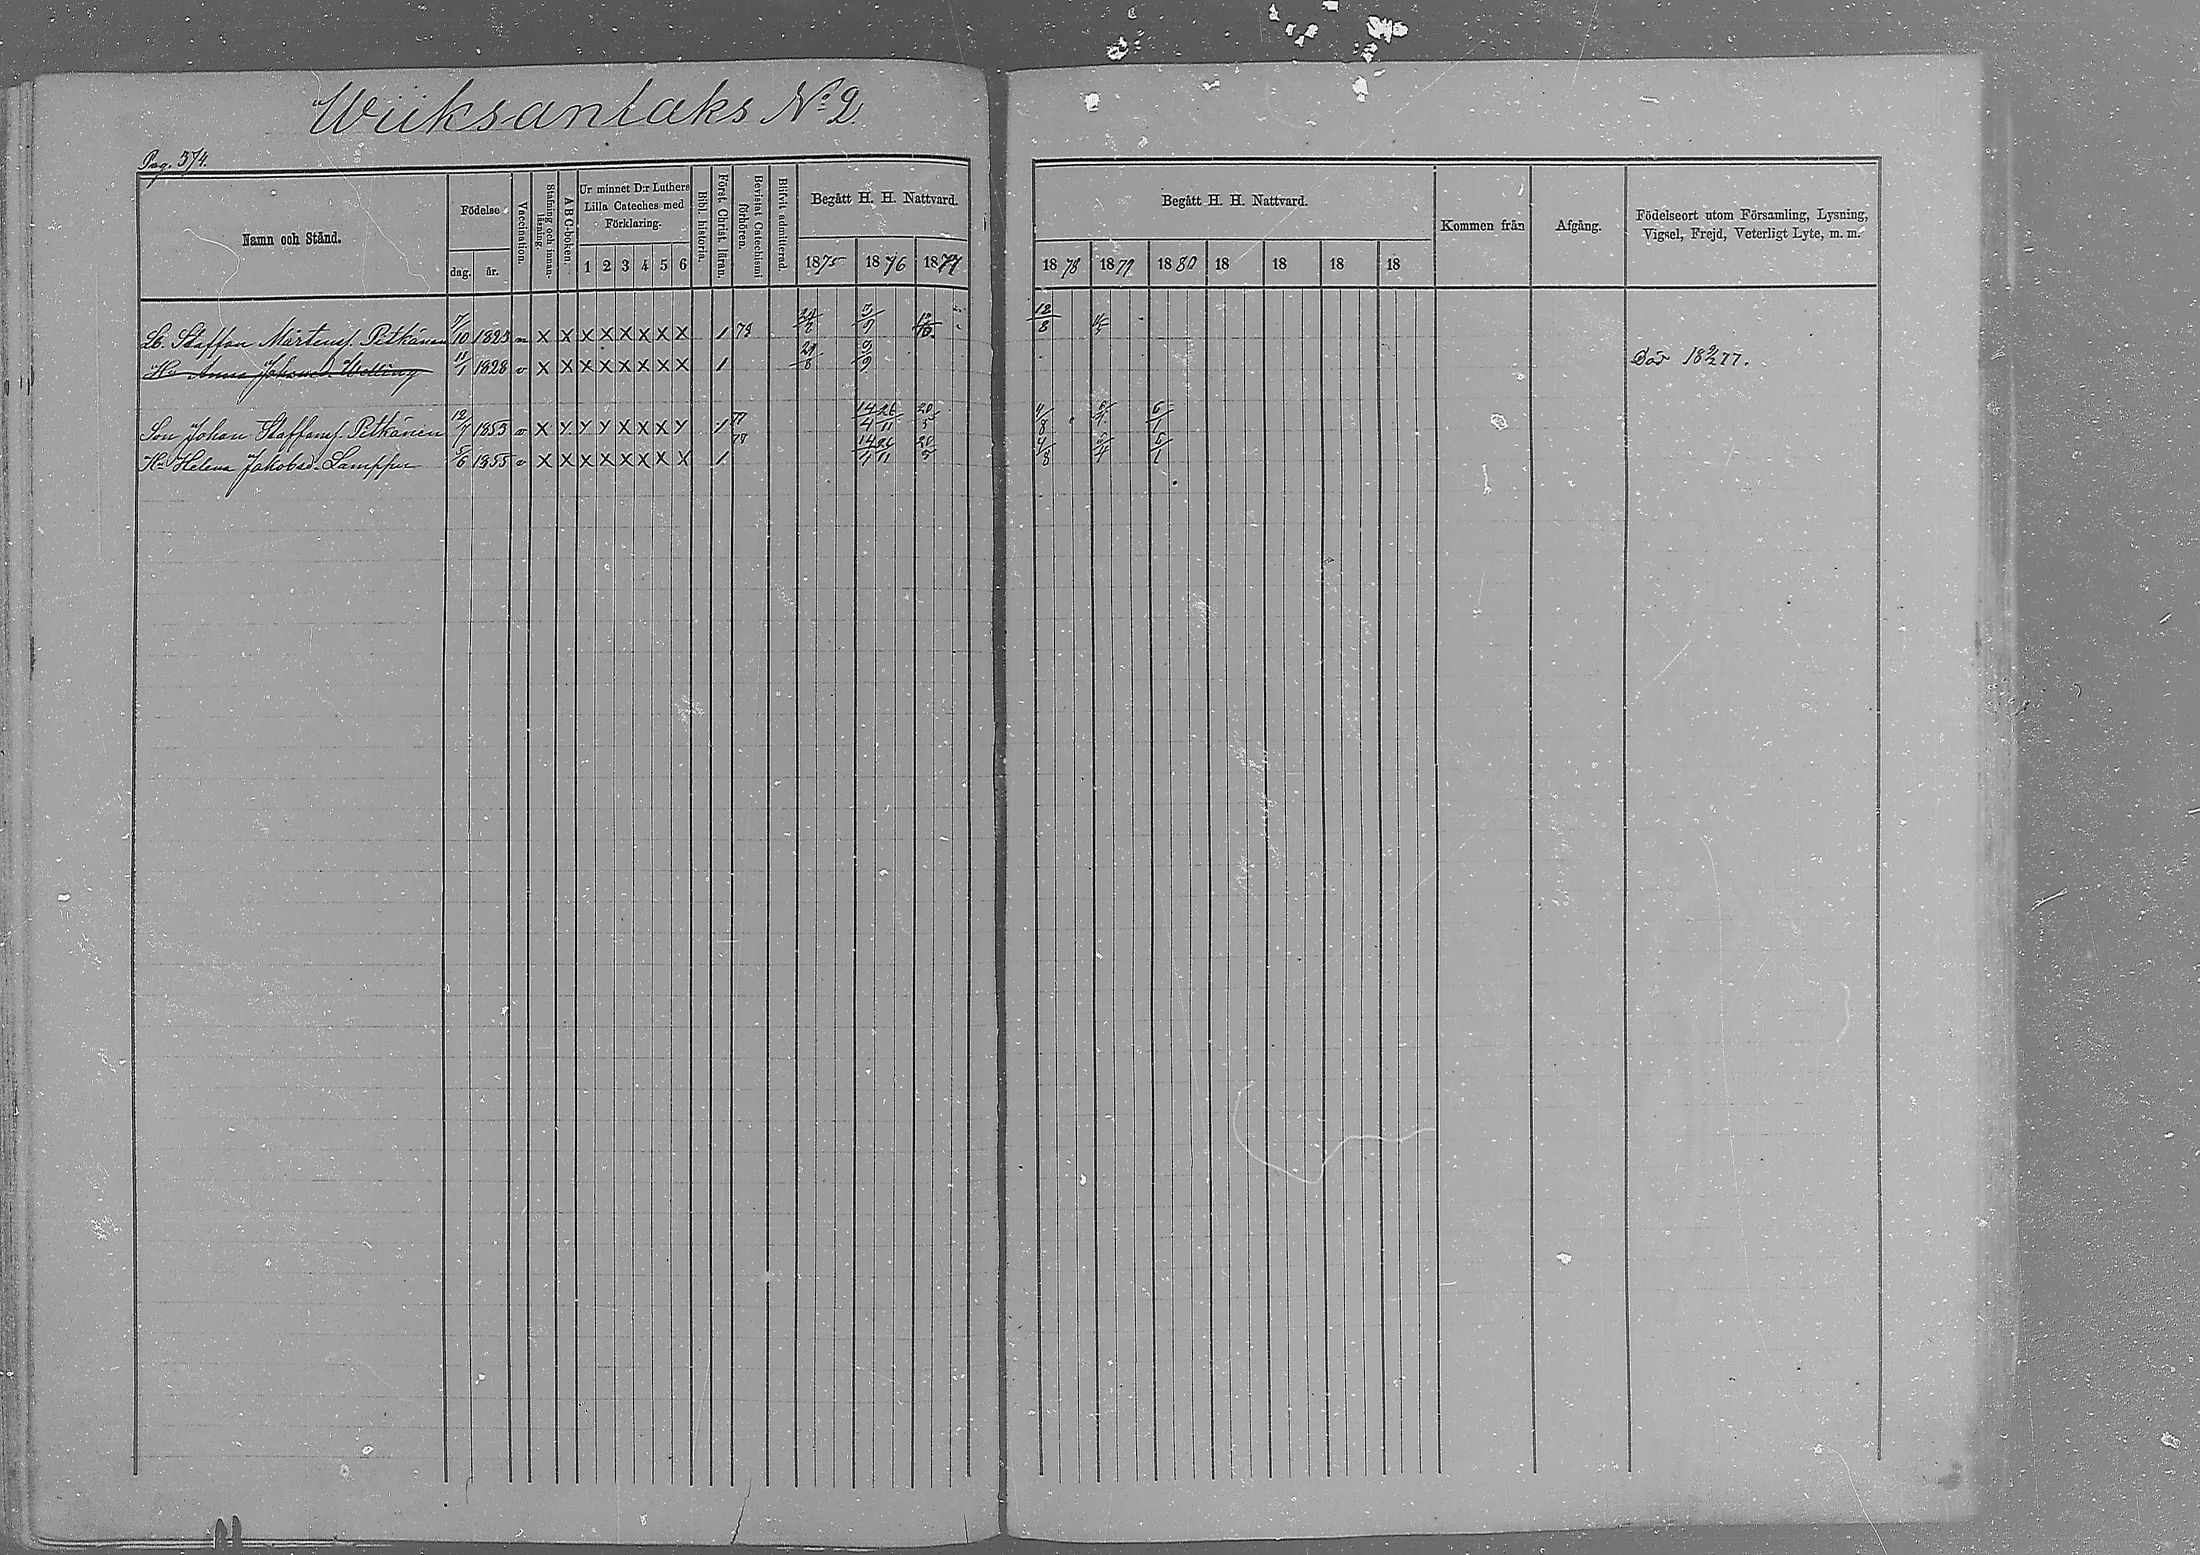 Wiiksanlaks No 2
Pag. 574.
Namn och Stånd.
Födelse
dag. år.
Vaccination.
Stafning och innanläsning.
ABC-boken.
Ur minnet D:r Luthers Lilla Cateches med Förklaring.
1 2 3 4 5 6
Bibl. historia.
Först. Christ. läran.
Bevistat Catechismi förhören.
Blifvit admitterad.
Begått H. H. Nattvard.
1875 1876 1877
Begått H. H. Nattvard.
1878 1879 1880 18 18 18 18
Kommen från
Afgång.
Födelseort utom Församling, Lysning, Vigsel, Frejd, Veterligt Lyte, m. m.
Lb. Staffan Mårtensf. Petkänen 7/10 1823 v X X X X X X X X 1 78 24/2 9/9 12/8
Hu Anna Johansd. Welling 11/1 1828 v X X X X X X X X 1 9/9 Död 18 9/2 77.
Son Johan Staffansf. Petkänen 12/7 1853 v X Y Y Y X X X Y 1 77 14/4 26/11 20/5 4/8 5/4 6/1
Hu Helena Jakobsd. Lamppu 5/6 1855 v X X X X X X X X 1 78 14/4 26/11 20/5 4/8 5/4 6/1